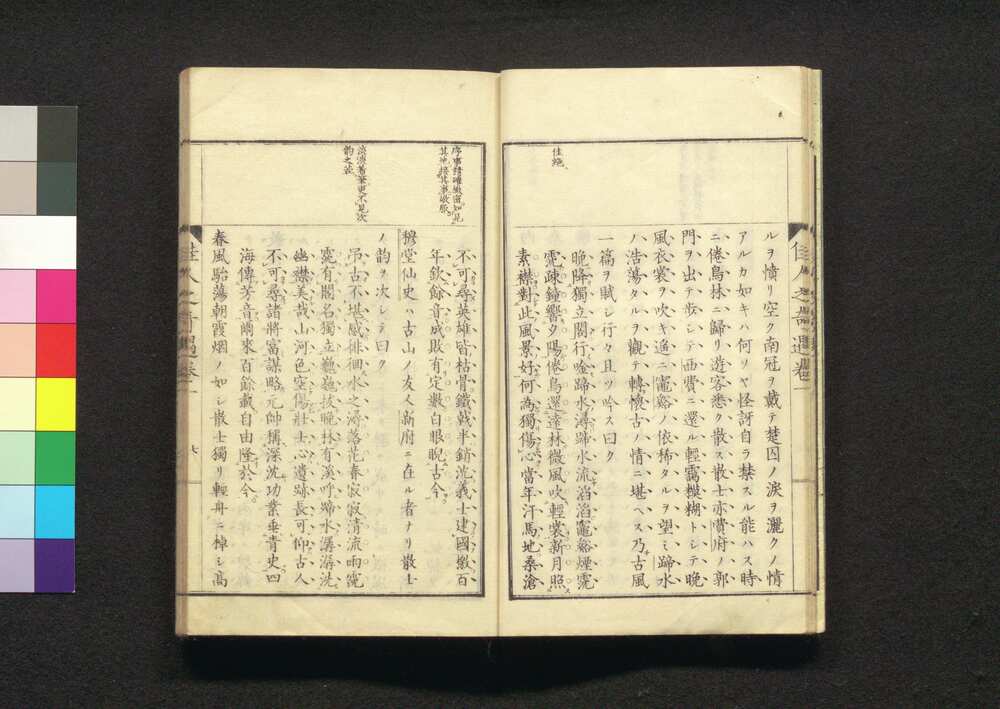 佳絶
ルヲ憤リ空ク南冠ヲ戴テ楚囚ノ涙ヲ灑クノ情
アルカ如キハ何リヤ怪訝自ラ禁スル能ハス時
ニ倦鳥林ニ歸リ遊客悉ク散ス散士亦費府ノ郭
門ヲ出テ歩シテ西費ニ還ル輕靄糢糊トシテ晩
風衣裳ヲ吹キ遙ニ竈谿ノ依稀タルヲ望ミ蹄水
ノ浩蕩タルヲ觀テ轉懷古ノ情ニ堪ヘス乃古風
一篇ヲ賦シ行々且ツ吟ス曰ク
晩降獨立閣行吟蹄水潯蹄水流滔滔竈谿煙霓
霓疎鐘響夕陽倦鳥還達林微風吹輕裳新月照
素襟對此風景好何為獨傷心當年汗馬地桑滄
佳人之奇遇卷一
序事精確緻密如見
其地接其事敬服
淡澹着筆更不見次
韵之迹
不可尋英雄皆枯骨鐵戟半銷沈義士建國檄百
年欽餘音成敗有定數白眼睨古今
穆堂仙史ハ古山ノ友人新府ニ在ル者ナリ散士
ノ韵ヲ次シテ曰ク
弔古不堪感徘徊水之潯落花春寂寂清流雨霓
霓有閣名獨立巍巍拔晩林有溪呼蹄水潺潺洗
幽襟美哉山河色空傷壯士心遺跡長可仰古人
不可尋諸將富謀略元帥稱深沈功業垂青史四
海傳芳音爾來百餘載自由隆於今
春風駘蕩朝霞烟ノ如シ散士獨リ輕舟ニ棹シ高
佳人之奇遇卷一